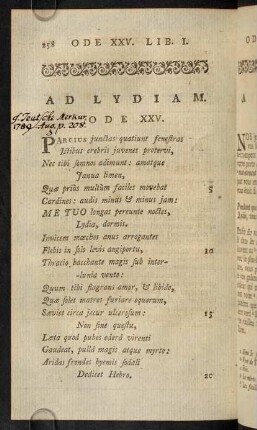 258 ODE XXV. LIB. I.
AD LYDIAM.
ODE XXV.
PARCIUS junctas quatiunt fenestras
Ictibus crebris juvenes protervi,
Nec tibi somnos adimunt: amatque
Janua limen,
Quæ priùs multùm faciles movebat 5
Cardines: audis minùs & minus jam:
ME TUO longas pereunte noctes,
Lydia, dormis.
Invicem mœchos anus arrogantes
Flebis in solo levis angiportu, 10
Thracio bacchante magis sub inter-
-lunia vento:
Quum tibi flagrans amor, & libido,
Quæ solet matres furiare equorum,
Sæviet circa jecur ulcerosum: 15
Non sine questu,
Læta quod pubes ederâ virenti
Gaudeat, pullâ magis atque myrto:
Aridas frondes hyemis sodali
Dedicet Hebro. 20